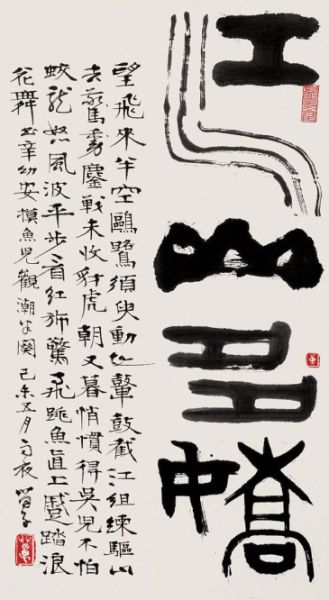 江山多嬌
望飛來半空鷗鷺須臾動地鼙鼓截江組練驅山
去鏖戰未收豺虎朝又暮悄慣得吳兒不怕
蛟龍怒風波平步看紅旆驚飛跳魚直上蹙踏浪
花舞書辛幼安摸魚兒觀潮半闋己未五月雨夜